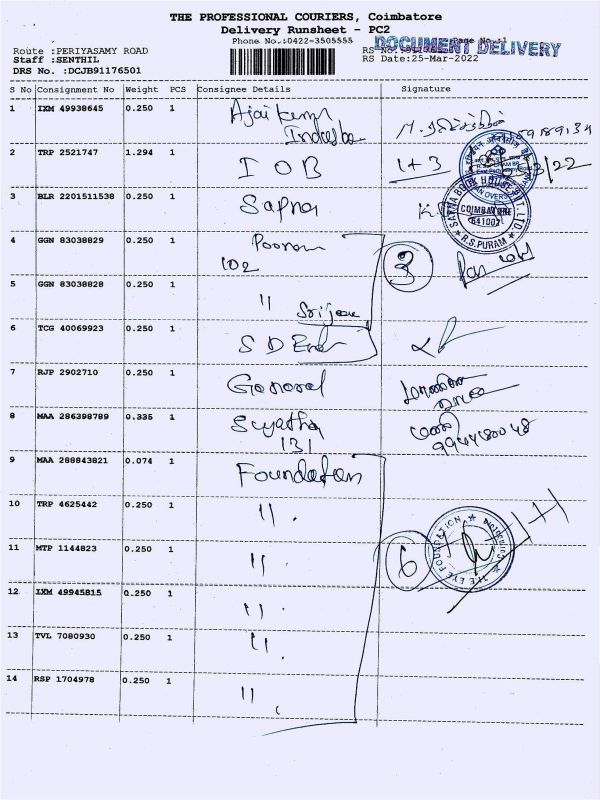 THE PROFESSIONAL COURIERS, Coimbatore
Delivery Runsheet - PC2
Phone No.:0422-3505555 Page No.:1
DOCUMENT DELIVERY
Route :PERIYASAMY ROAD
Staff :SENTHIL RS Date:25-Mar-2022
DRS No. :DCJB91176501
S No Consignment No Weight PCS Consignee Details Signature
1 IXM 49938645 0.250 1
2 TRP 2521747 1.294 1 I O B 1+3
3 BLR 2201511538 0.250 1 Sapna
COIMBATORE
641002
R.S.PURAM
4 GGN 83038829 0.250 1 Poonam
102 3
5 GGN 83038828 0.250 1 "
6 TCG 40069923 0.250 1
7 RJP 2902710 0.250 1 General
8 MAA 286398789 0.335 1 Sujatha
131
9 MAA 288843821 0.074 1 Foundation
10 TRP 4625442 0.250 1 "
THE EYE FOUNDATION
11 MTP 1144823 0.250 1 " 6
12 IXM 49945815 0.250 1 "
13 TVL 7080930 0.250 1 "
14 RSP 1704978 0.250 1 "